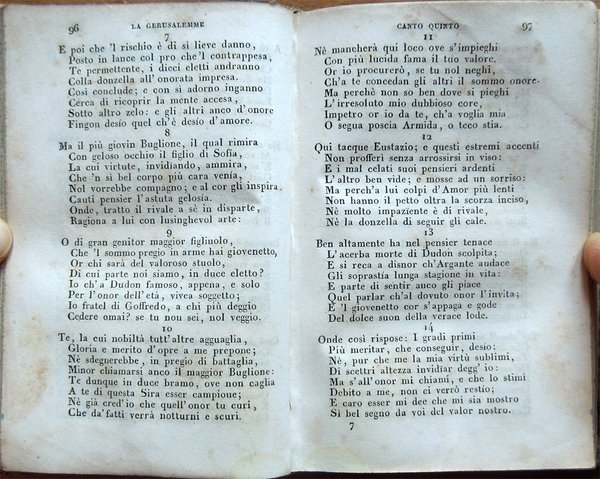 96 LA GERUSALEMME
7
E poi che 'l rischio è di sì lieve danno,
Posto in lance col pro che 'l contrappesa,
Te permettente, i dieci eletti andranno
Colla donzella all'onorata impresa.
Così conclude; e con sì adorno inganno
Cerca di ricoprir la mente accesa,
Sotto altro zelo: e gli altri anco d'onore
Fingon desio quel ch'è desio d'amore.
8
Ma il più giovin Buglione, il qual rimira
Con geloso occhio il figlio di Sofia,
La cui virtute, invidiando, ammira,
Che 'n sì bel corpo più cara venía,
Nol vorrebbe compagno; e al cor gli inspira
Cauti pensier l'astuta gelosia.
Onde, tratto il rivale a sè in disparte,
Ragiona a lui con lusinghevol arte:
9
O di gran genitor maggior figliuolo,
Che 'l sommo pregio in arme hai giovenetto,
Or chi sarà del valoroso stuolo,
Di cui parte noi siamo, in duce eletto?
Io ch'a Dudon famoso, appena, e solo
Per l'onor dell'età, vivea soggetto;
Io fratel di Goffredo, a chi più deggio
Cedere omai? se tu non sei, nol veggio.
10
Te, la cui nobiltà tutt'altre agguaglia,
Gloria e merito d'opre a me prepone;
Nè sdegnerebbe, in pregio di battaglia,
Minor chiamarsi anco il maggior Buglione:
Te dunque in duce bramo, ove non caglia
A te di questa Sira esser campione;
Nè già cred'io che quell'onor tu curi,
Che da'fatti verrà notturni e scuri.
CANTO QUINTO 97
11
Nè mancherà quì loco ove s'impieghi
Con più lucida fama il tuo valore.
Or io procurerò, se tu nol neghi,
Ch'a te concedan gli altri il sommo onore.
Ma perchè non so ben dove si pieghi
L'irresoluto mio dubbioso core,
Impetro or io da te, ch'a voglia mia
O segua poscia Armida, o teco stia.
12
Qui tacque Eustazio; e questi estremi accenti
Non profferì senza arrossirsi in viso:
E i mal celati suoi pensieri ardenti
L'altro ben vide; e mosse ad un sorriso:
Ma perch'a lui colpi d'Amor più lenti
Non hanno il petto oltra la scorza inciso,
Nè molto impaziente è di rivale,
Nè la donzella di seguir gli cale.
13
Ben altamente ha nel pensier tenace
L'acerba morte di Dudon scolpita;
E si reca a disnor ch'Argante audace
Gli soprastia lunga stagione in vita:
E parte di sentir anco gli piace
Quel parlar ch'al dovuto onor l'invita;
E 'l giovenetto cor s'appaga e gode
Del dolce suon della verace lode.
14
Onde così rispose: I gradi primi
Più meritar, che conseguir, desio;
Nè, pur che me la mia virtù sublimi,
Di scettri altezza invidiar degg' io:
Ma s'all'onor mi chiami, e che lo stimi
Debito a me, non ci verrò restio;
E caro esser mi dee che mi sia mostro
Sì bel segno da voi del valor nostro.
7